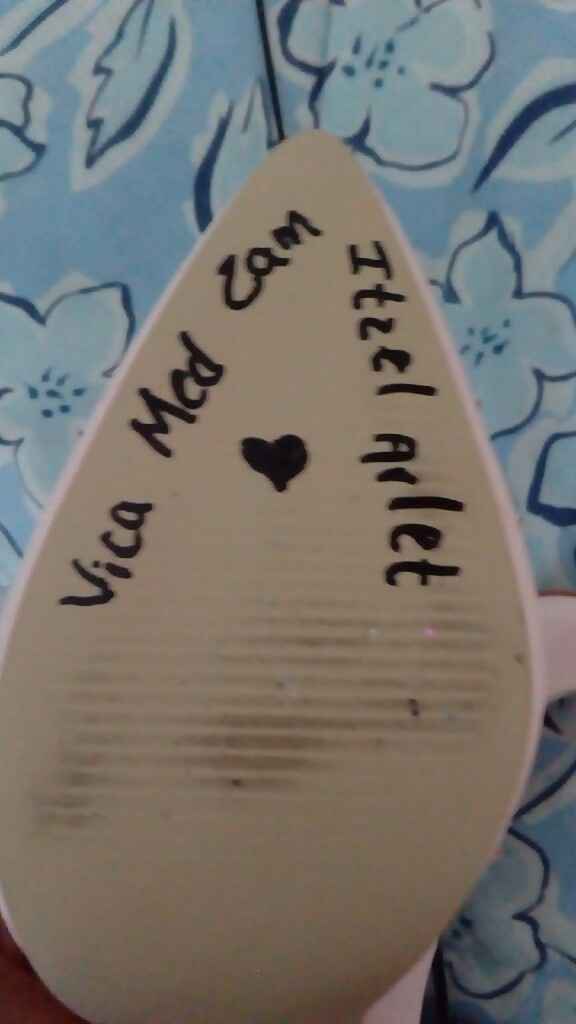 Vica Med Zam
Itzel Arlet